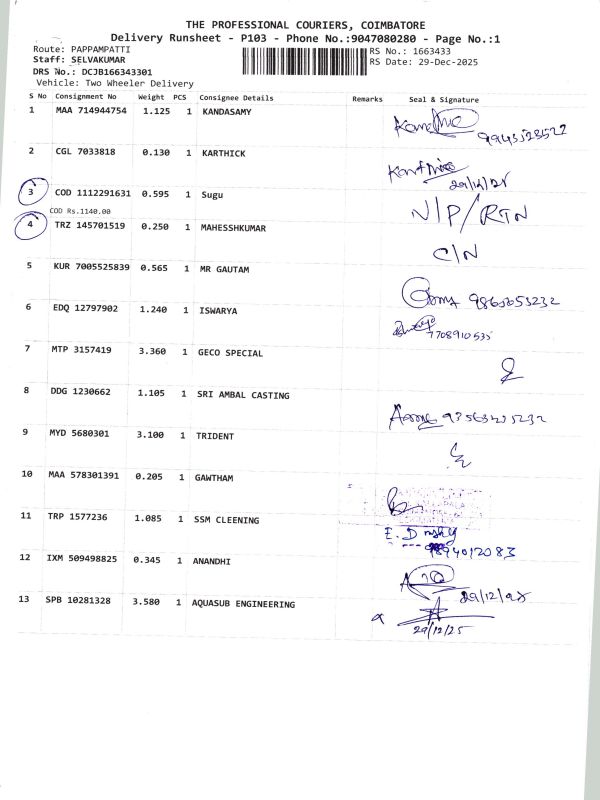 THE PROFESSIONAL COURIERS, COIMBATORE
Delivery Runsheet - P103 - Phone No.:9047080280 - Page No.:1
Route: PAPPAMPATTI
RS No.: 1663433
Staff: SELVAKUMAR
RS Date: 29-Dec-2025
DRS No.: DCJB166343301
Vehicle: Two Wheeler Delivery
S No Consignment No Weight PCS Consignee Details Remarks Seal & Signature
1 MAA 714944754 1.125 1 KANDASAMY
2 CGL 7033818 0.130 1 KARTHICK
29/12/25
3 COD 1112291631 0.595 1 Sugu N/P/RTN
COD Rs.1140.00
4 TRZ 145701519 0.250 1 MAHESSHKUMAR C/N
5 KUR 7005525839 0.565 1 MR GAUTAM
6 EDQ 12797902 1.240 1 ISWARYA
7708910535
7 MTP 3157419 3.360 1 GECO SPECIAL
8 DDG 1230662 1.105 1 SRI AMBAL CASTING
9 MYD 5680301 3.100 1 TRIDENT
10 MAA 578301391 0.205 1 GAWTHAM
11 TRP 1577236 1.085 1 SSM CLEENING
12 IXM 509498825 0.345 1 ANANDHI
29/12/25
13 SPB 10281328 3.580 1 AQUASUB ENGINEERING
29/12/25